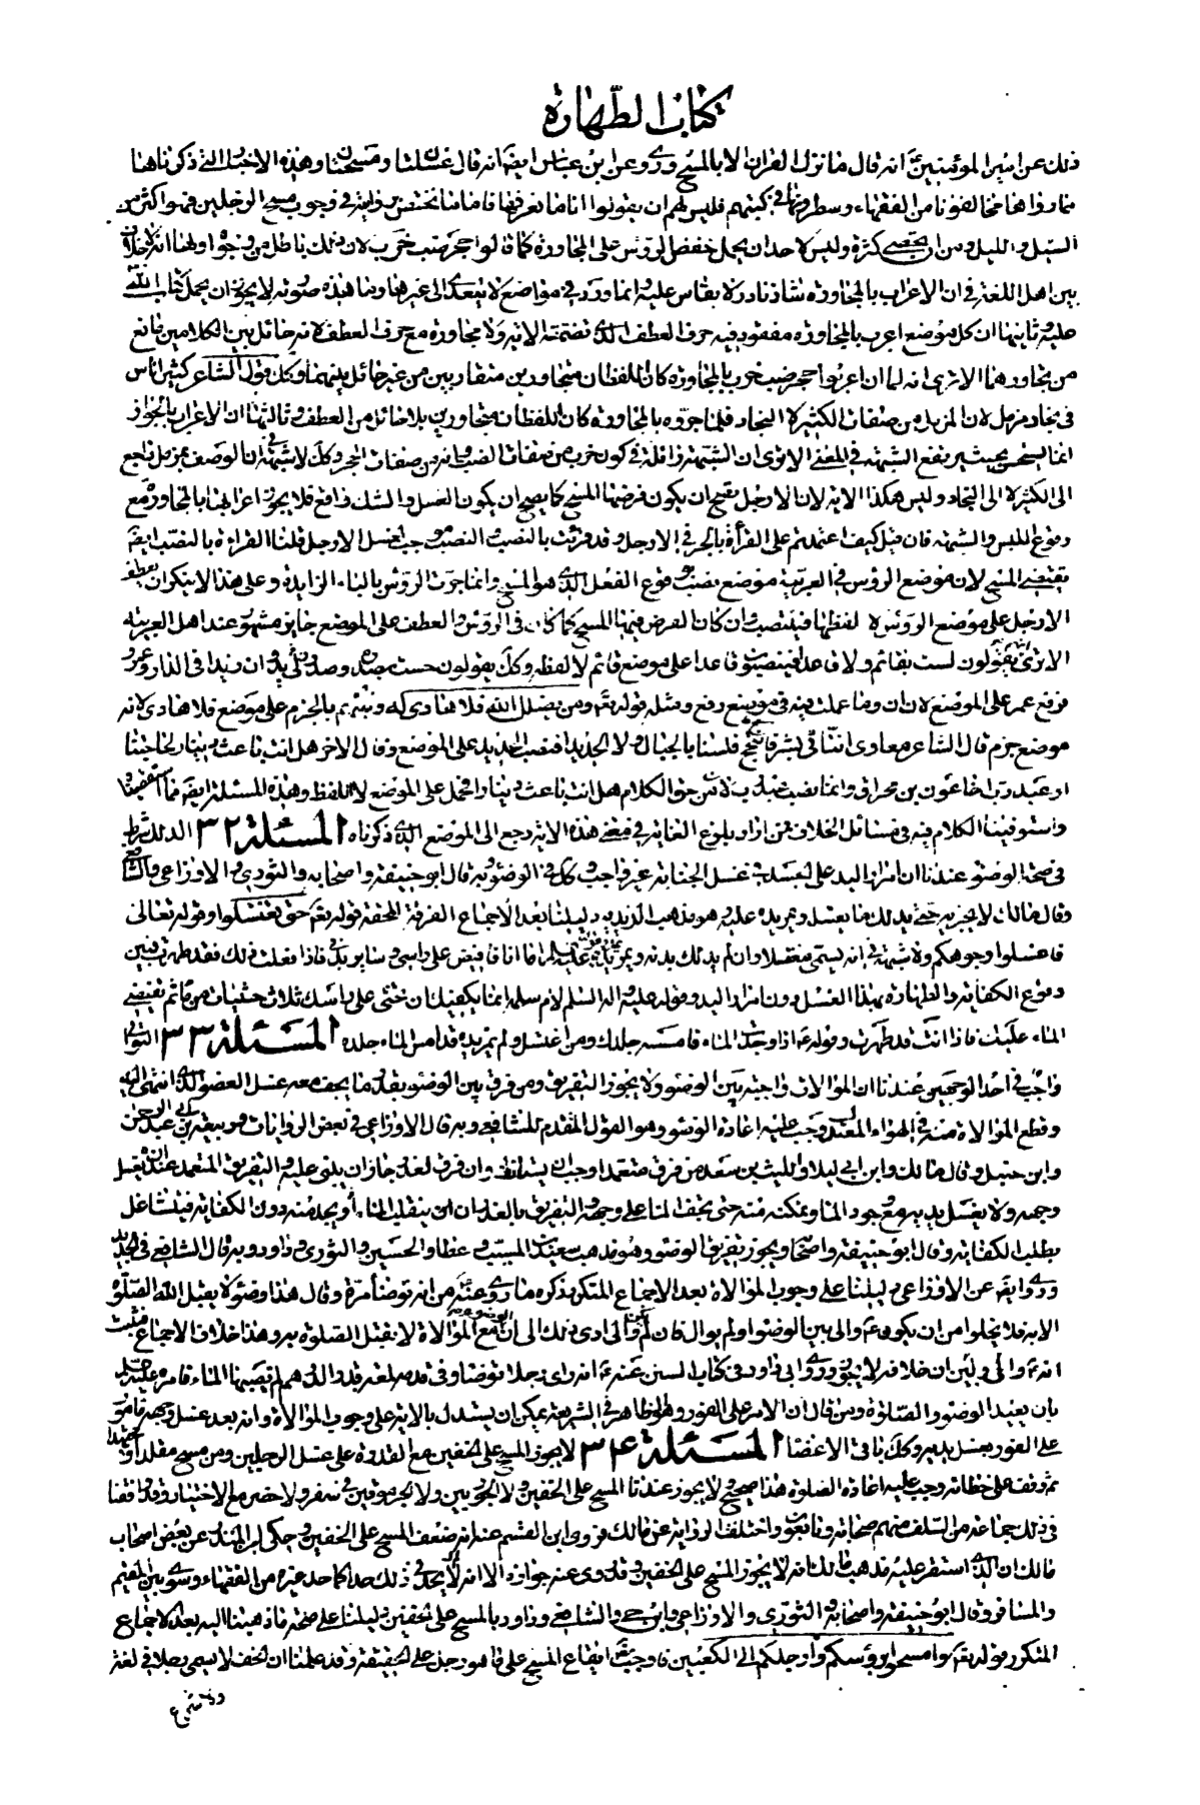 كتاب الطهارة
ذلك عن امير المؤمنين انه قال ما نزل القران الا بالمسح وروى عن ابن عباس ايضا انه قال غسلتان و مسحتان وهذه الاخبار التي ذكرناها هنا
مما رواها مخالفونا من الفقهاء وسطروها في كتبهم فليس لهم ان يقولوا اننا ما نعرفها فاما ما نختص بروايته في وجوب مسح الرجلين فهو اكثر من
السيل والليل ومن ان يحصى كثرة وليس لاحد ان يحمل خفض الرؤس على المجاورة كما قالوا جحر ضب خرب لان ذلك باطل من وجوه اولها انه لا خلاف
بين اهل اللغة في ان الاعراب بالمجاورة شاذ نادر لا يقاس عليه وانما ورد في مواضع لا يتعدى الى غيرها وما هذه صورته لا يجوز ان يحمل كتاب الله
عليه وثانيها ان كل موضع اعرب بالمجاورة مفقود فيه حرف العطف الذى تضمنته الاية ولا مجاورة مع حرف العطف لانه حائل بين الكلامين مانع
من تجاورهما الا ترى انه لما ان اعربوا جحر ضب خرب بالمجاورة كان اللفظان متجاورين متقاربين من غير حائل بينهما وكك قول الشاعر كبير اناس
في بجاد مزمل لان المزمل من صفات الكبير لا البجاد فلما جروه بالمجاورة كان اللفظان متجاورين بلا حائل من العطف وثالثها ان الاعراب بالجوار
انما يستحسن بحيث يرتفع الشبهة في المعنى الا ترى ان الشبهة زائلة في كون خرب من صفات الضب وانه من صفات الجحر وكك لا شبهة في ان الوصف بمزمل راجع
الى الكبير لا الى البجاد وليس هكذا الاية لان الارجل يصح ان يكون فرضها المسح كما يصح ان يكون الغسل والشك واقع فلا يجوز اعرابها بالمجاورة مع
وقوع اللبس والشبهة فان قيل كيف اعتمدتم على القرأة بالجر في الارجل وقد قرئت بالنصب والنصب موجب لغسل الارجل قلنا القراءة بالنصب ايضا
يقتضى المسح لان موضع الرؤس في العربية موضع نصب بوقوع الفعل الذى هو المسح وانما جرت الرؤس بالباء الزايدة وعلى هذا لا ينكر ان يعطف
الارجل على موضع الرؤس لا لفظها فينتصب وان كان الفرض فيها المسح كما كان في الرؤس والعطف على الموضع جايز مشهور عند اهل العربية
الا ترى انهم يقولون لست بقائم ولا قاعدا فينصبون قاعدا على موضع قائم لا لفظه وكك يقولون خشنت بصدره وصدر زيد وان زيدا في الدار وعمرو
فرفع عمرو على الموضع لان ان وما عملت فيه في موضع رفع ومثله قوله تعم ومن يضلل الله فلا هادى له ويذرهم بالجزم على موضع فلا هادى لانه
موضع جزم قال الشاعر معاوى اننا بشر فاسجح فلسنا بالجبال ولا الحديدا فنصب الحديد على الموضع وقال الاخر هل انت باعث دينار لحاجتنا
او عبد رب اخا عون بن مخراق وانما نصب عبد رب لان من حق الكلام هل انت باعث دينارا فحمل على الموضع لا اللفظ وهذه المسئلة ايضا مما استقصينا
واستوفينا الكلام فيه في مسائل الخلاف فمن اراد بلوغ الغاية في معنى هذه الاية رجع الى الموضع الذى ذكرناه المسئلة ٣٢ الدلك شرط
في صحة الوضوء عندنا ان امرار اليد على الجسد في غسل الجنابة غير واجب وكك في الوضوء وبه قال ابو حنيفة واصحابه والثوري والاوزاعي والشافعي
وقال مالك لا يجزيه حتى يدلك ما يغسل ويمر يده عليه وهو مذهب الزيديه دليلنا بعد الاجماع الفرقة المحقة قوله تعم حتى تغتسلوا وقوله تعالى
فاغسلوا وجوهكم ولا شبهة في انه يسمى مغتسلا وان لم يدلك بدنه ويمر يده عليه اما انا فافيض على راسى وساير بدنى فاذا فعلت ذلك فقد طهرت فبين
وقوع الكفاية والطهارة بهذا الغسل دون امرار اليد وقوله عليه واله السلم لام سلمه انما يكفيك ان تحثى على راسك ثلاث حثيات من ماء ثم تفيضى
الماء عليك فاذا انت قد طهرت وقوله ع اذا وجدت الماء فامسه جلدك ومن اغتسل ولم تمر يده قد امس الماء جلده المسئلة ٣٣ التوالى
واجب في احد الوجهين عندنا ان الموالات واجبة بين الوضوء ولا يجوز التفريق ومن فرق بين الوضوء بقدر ما يجف معه غسل العضو الذى انتهى اليه
وقطع الموالاة منه في الهواء المعتدل وجب عليه اعادة الوضوء وهو القول المتقدم للشافعى وبه قال الاوزاعي في بعض الروايات وربيعة بن ابى عبد الرحمن
وابن حنبل وقال مالك وابن ابي ليلا والليث بن سعد من فرق متعمدا وجب ان يستانف وان فرق لعذر جاز ان يبنى عليه والتفريق المتعمد عنده ان يغسل
وجهه ولا يغسل يديه مع وجود الماء وتمكنه منه حتى يجف الماء على وجهه والتفريق بالعذر بان ان ينقلب الماء، او يجد منه دون الكفاية فيتشاغل
بطلب الكفاية وقال ابو حنيفة واصحابه يجوز تفريق الوضوء وهو مذهب سعيد بن المسيب وعطاء والحسين والثوري وداود وبه قال الشافعى في الجديد
وروى ايضا عن الاوزاعي دليلنا على وجوب الموالاة بعد الاجماع المتكرر ذكره ما روى عنه من انه توضأ مرة وقال هذا وضوء لا يقبل الله الصلوة
الا به فلا يخلوا من ان يكون ع والى بين الوضوء او لم يوال فان لم يوالى ادى ذلك الى ان مع الموالاة لا يقبل الصلوة به وهذا خلاف الاجماع فثبت
انه ع والى وبين ان خلافه لا يجوز وروى ابى داود في كتاب السنن عنه ع انه راى رجلا توضا وفى قدمه لمعة قدر الدرهم لم يصبها الماء فامره عليه السلم
بان يعيد الوضوء والصلوة ومن قال ان الامر على الفور وهو الظاهر في الشريعة يمكن ان يستدل بالاية على وجوب الموالاة وانه بعد غسل وجهه مامور
على الفور بغسل يديه وكك باقى الاعضاء المسئلة ٣٤ لا يجوز المسح على الخفين مع القدرة على غسل الرجلين ومن مسح مقلدا او مجتهدا
ثم وقف على خطائه وجب عليه اعادة الصلوة هذا صحيح ولا يجوز عندنا المسح على الخفين ولا الجوربين ولا الجرموقين في سفر ولا حضر مع الاختيار وقد وافقنا
في ذلك جماعة من السلف منهم صحابة وتابعون واختلف الرواية عن مالك فروى ابن القسم عنه انه ضعف المسح على الخفين وحكى ابن المنذر عن بعض اصحاب
مالك ان الذى استقر عليه مذهب مالك انه لا يجوز المسح على الخفين وقد روى عنه جوازه الا انه لا يحد في ذلك حدا كما حد غيره من الفقهاء وسوى بين المقيم
والمسافر وقال ابو حنيفة واصحابه والثوري والاوزاعي وابن حى والشافعى وداود بالمسح على الخفين دليلنا على صحة ما ذهبنا اليه بعد الاجماع
المتكرر قوله تعم وامسحوا برؤسكم وارجلكم الى الكعبين فاوجب ايقاع المسح على ما هو رجل على الحقيقة وقد علمنا ان الخف لا يسمى رجلا في لغة